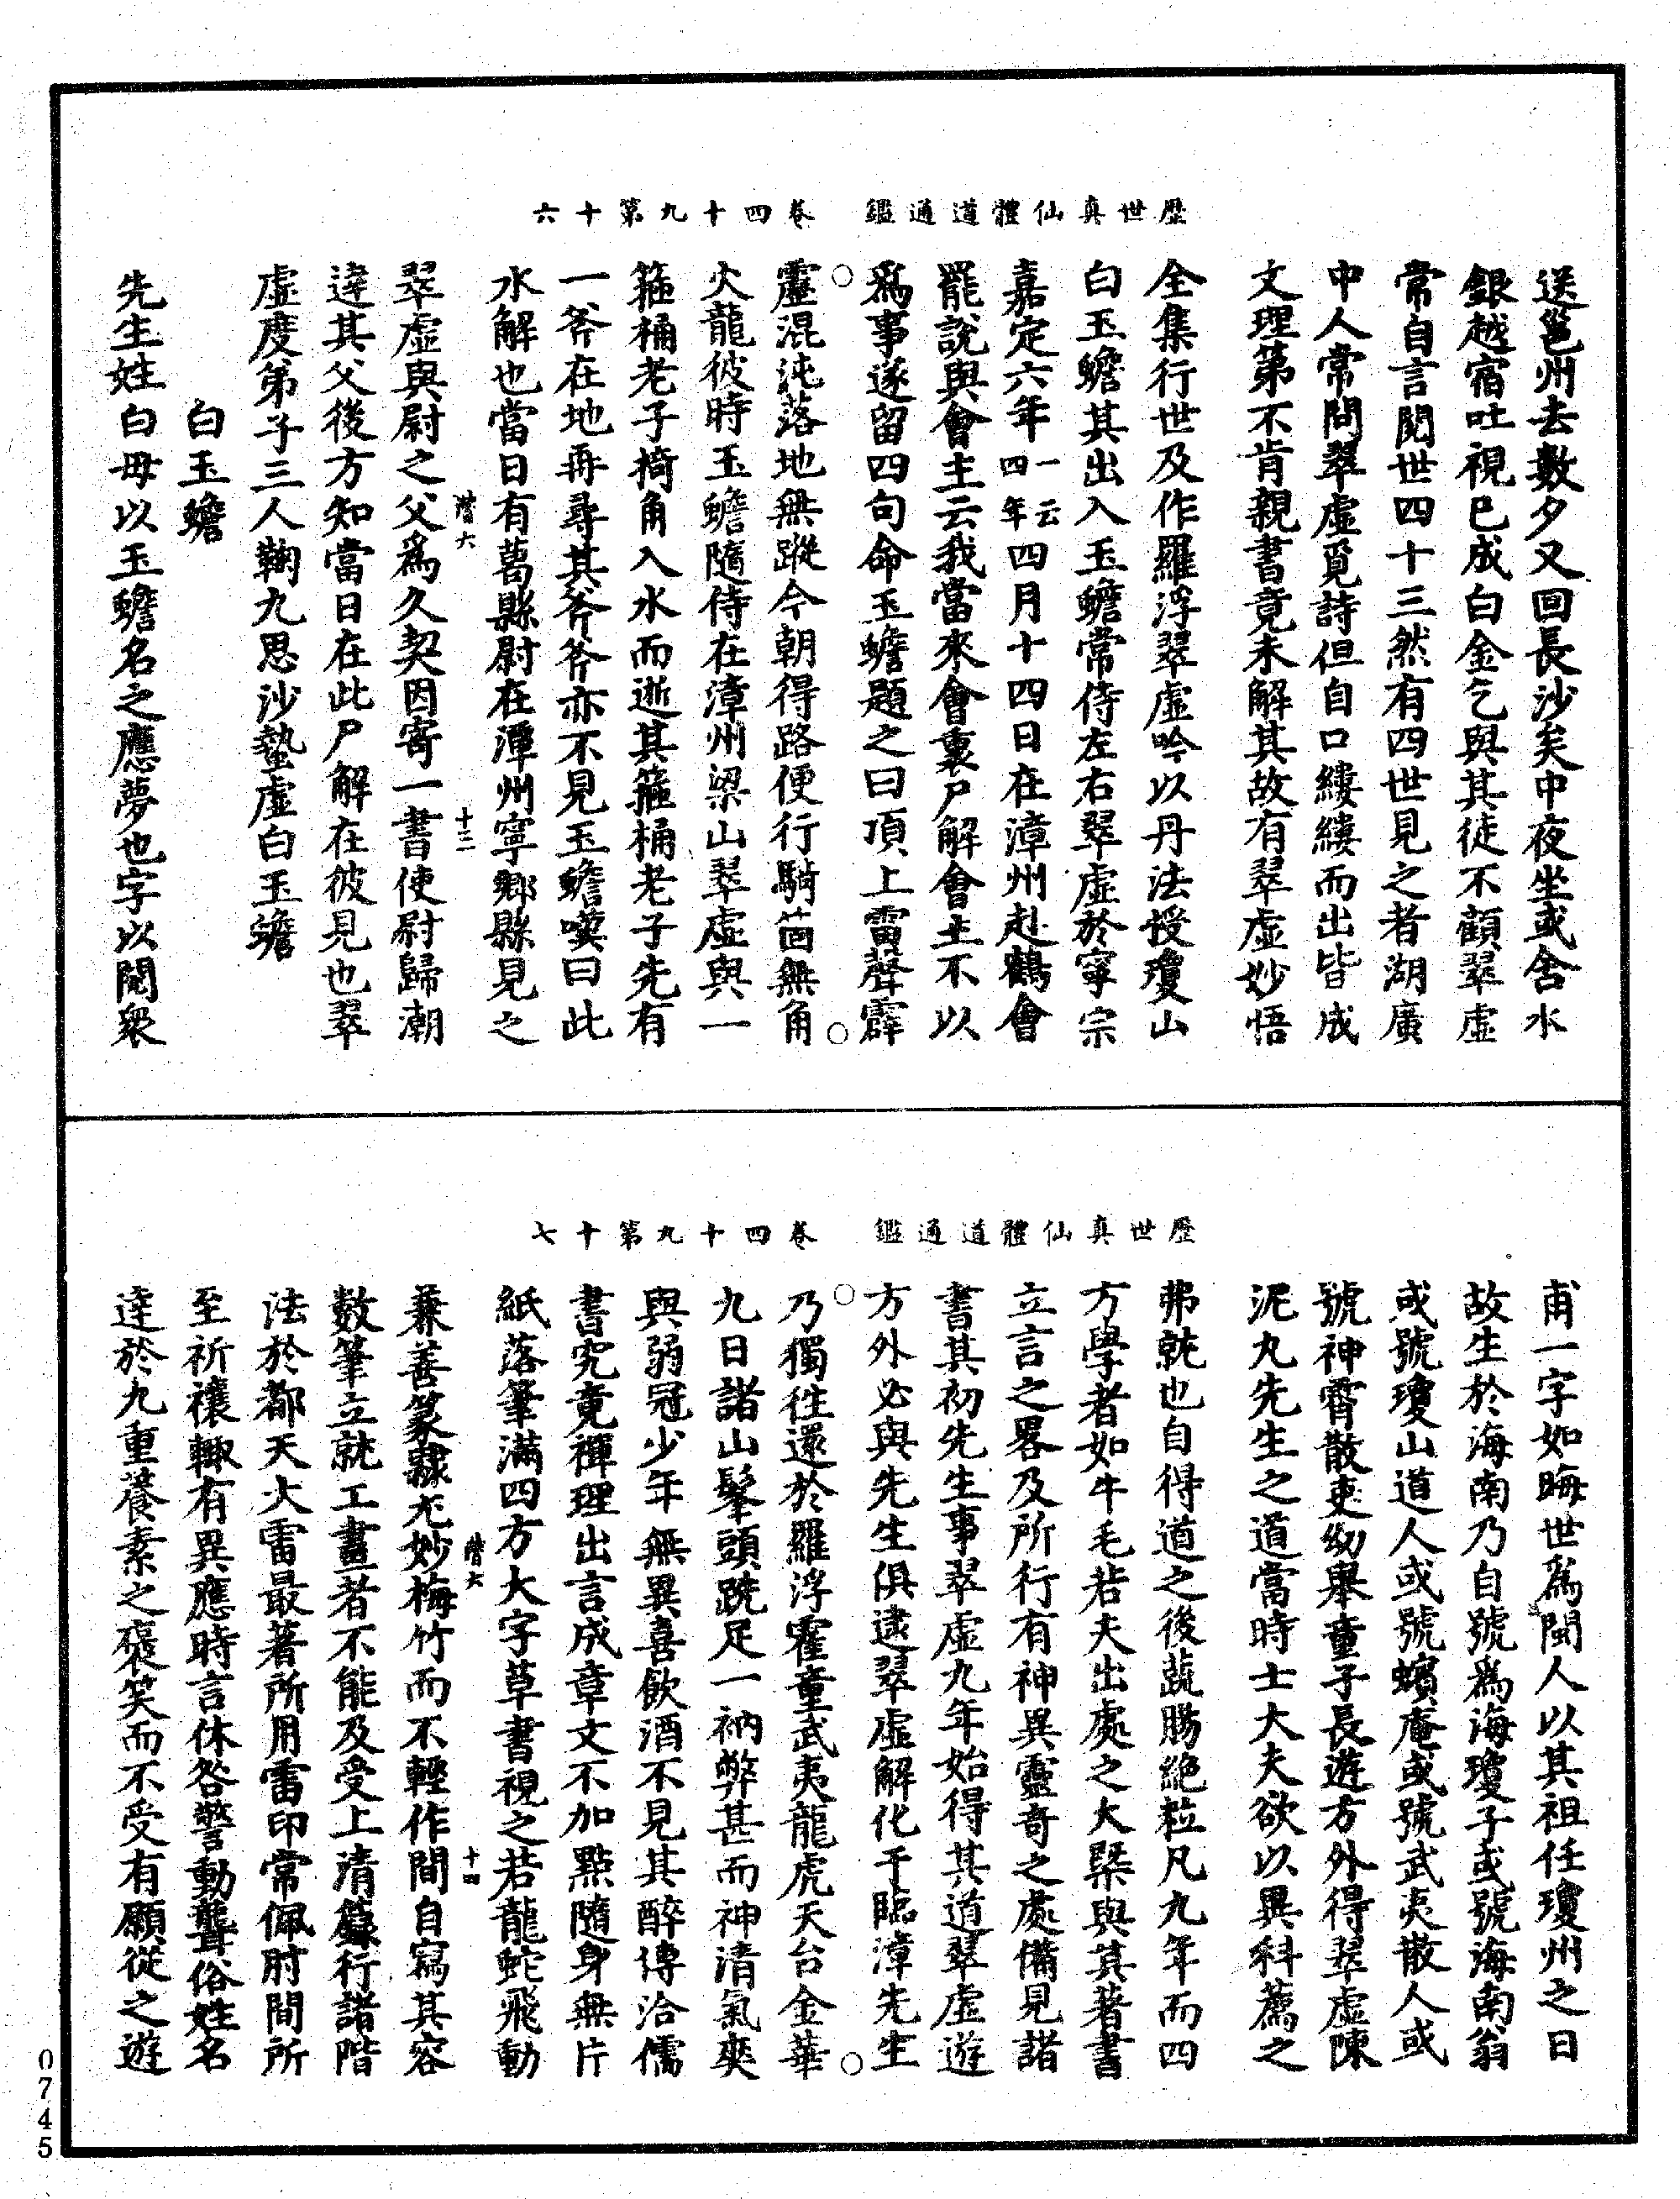 歷世真仙體道通鑑 卷四十九第十六
送邕州去數夕又回長沙矣中夜坐或含水
銀越宿吐視已成白金乞與其徒不顧翠虛
常自言閱世四十三然有四世見之者湖廣
中人常問翠虛覓詩但自口縷縷而出皆成
文理第不肯親書竟未解其故有翠虛妙悟
全集行世及作羅浮翠虛吟以丹法授瓊山
白玉蟾其出入玉蟾常侍左右翠虛於寧宗
嘉定六年一云四年四月十四日在漳州赴鶴會
罷說與會主云我當來會裏尸解會主不以
爲事遂留四句命玉蟾題之曰頂上雷聲霹
靂混沌落地無蹤今朝得路便行騎箇無角
火龍彼時玉蟾隨侍在漳州梁山翠虛與一
箍桶老子掎角入水而逝其箍桶老子先有
一斧在地再尋其斧斧亦不見玉蟾嘆曰此
水解也當日有葛縣尉在潭州寧鄉縣見之
翠虛與尉之父爲久契因寄一書使尉歸潮
達其父後方知當日在此尸解在彼見也翠
虛度弟子三人鞠九思沙蟄虛白玉蟾
白玉蟾
先生姓白母以玉蟾名之應夢也字以閱衆
歷世真仙體道通鑑 卷四十九第十七
甫一字如晦世爲閩人以其祖任瓊州之日
故生於海南乃自號爲海瓊子或號海南翁
或號瓊山道人或號蠙庵或號武夷散人或
號神霄散吏幼舉童子長遊方外得翠虛陳
泥丸先生之道當時士大夫欲以異科薦之
弗就也自得道之後蔬腸絕粒凡九年而四
方學者如牛毛若夫出處之大槩與其著書
立言之畧及所行有神異靈奇之處備見諸
書其初先生事翠虛九年始得其道翠虛遊
方外必與先生俱逮翠虛解化于臨漳先生
乃獨往還於羅浮霍童武夷龍虎天台金華
九日諸山髼頭跣足一衲弊甚而神清氣爽
與弱冠少年無異喜飲酒不見其醉博洽儒
書究竟禪理出言成章文不加點隨身無片
紙落筆滿四方大字草書視之若龍蛇飛動
兼善篆隸尤妙梅竹而不輕作間自寫其容
數筆立就工畫者不能及受上清籙行諸階
法於都天大雷最著所用雷印常佩肘間所
至祈禳輒有異應時言休咎警動聾俗姓名
達於九重養素之褒笑而不受有願從之遊
0745